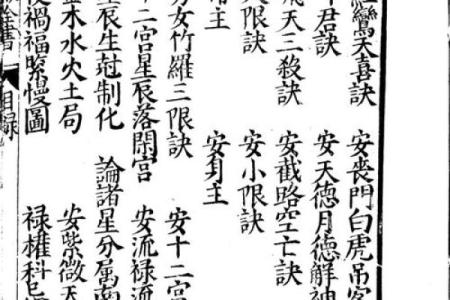 鸞天喜訣　安喪門白虎吊客
君訣　安天德月德解神
飛天三殺訣　安截路空亡訣
大限訣　安小限訣
主　安身主
男女竹羅三限訣　安十二宮
十二宮星辰落閑宮　安流祿流
星辰生尅制化　論諸星分屬南
金木水火土局　安紫微天
禍福緊慢圖　祿權科
書　目錄